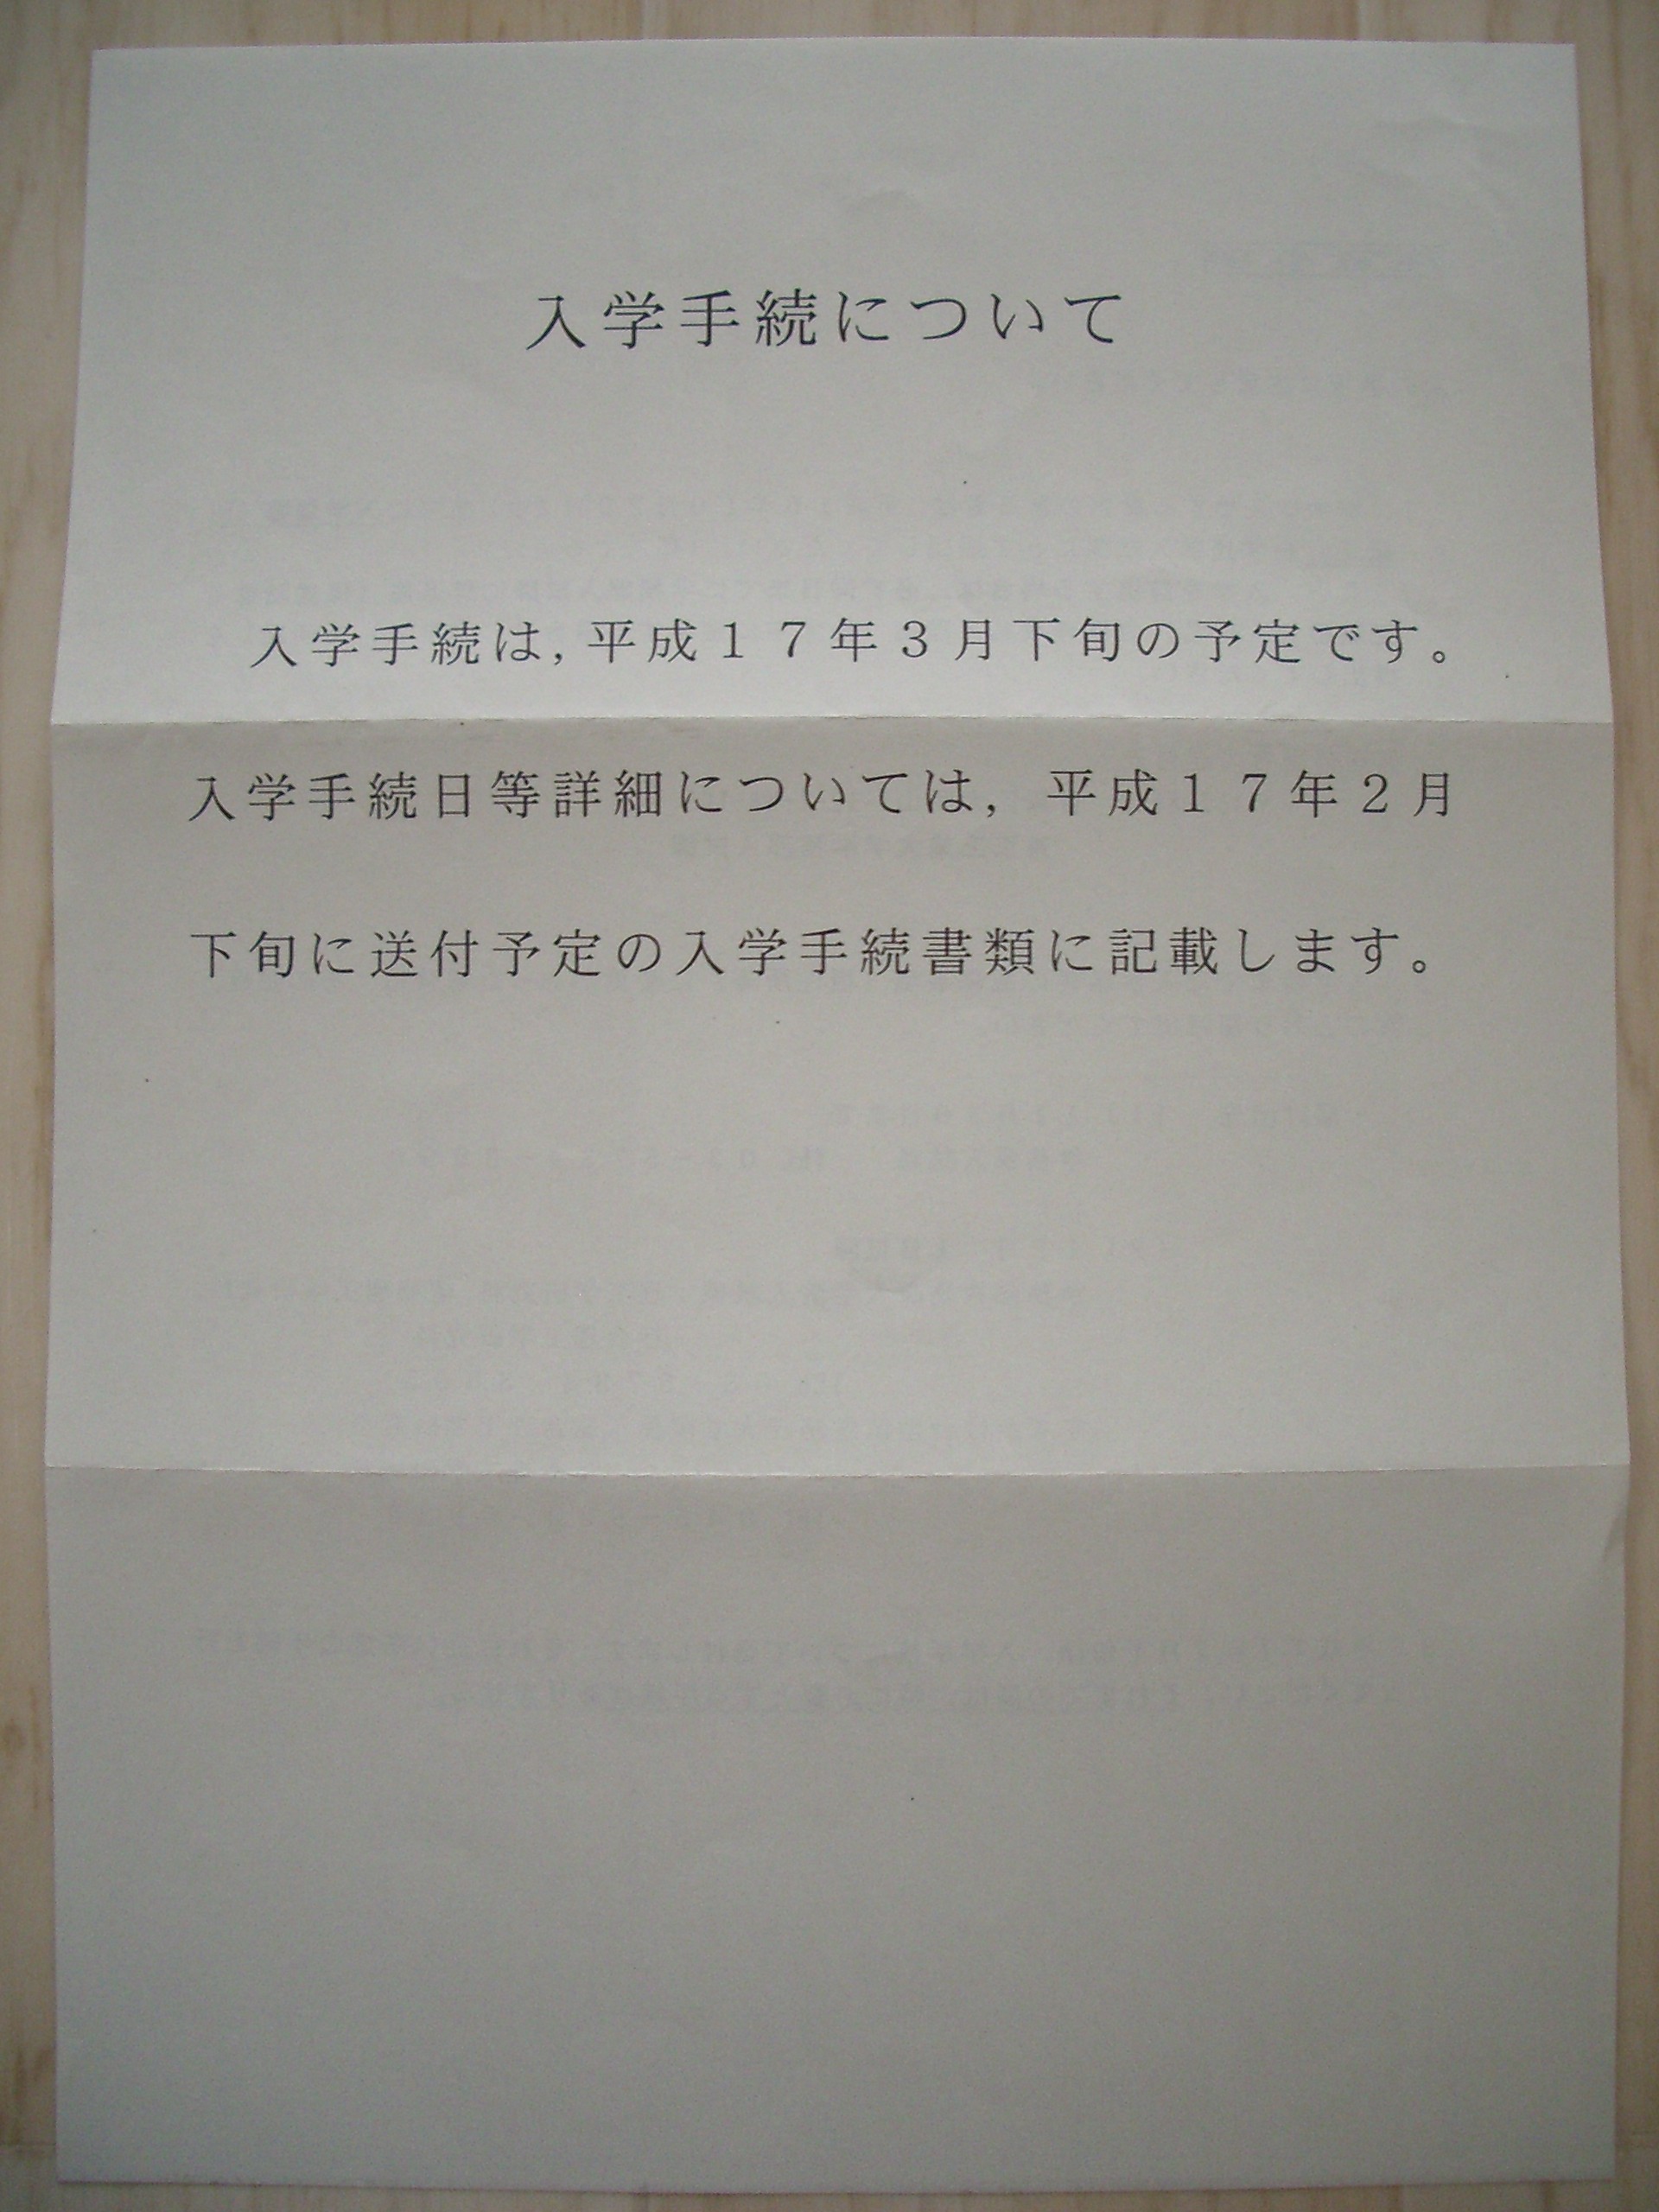 入学手続について
入学手続は,平成１７年３月下旬の予定です。
入学手続日等詳細については，平成１７年２月
下旬に送付予定の入学手続書類に記載します。